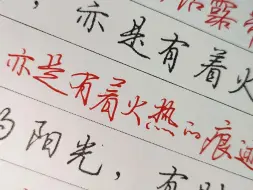 露
，亦是有着火
亦是有着火热的痕迹
阳光，有